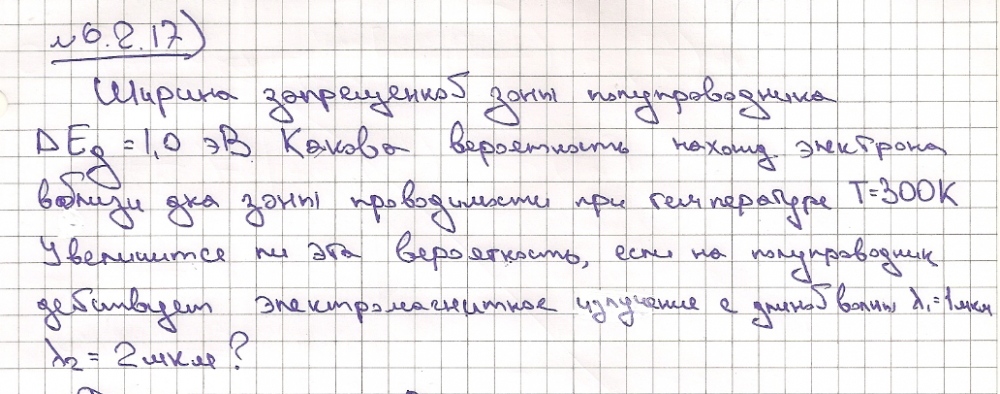 №6.2.17)
Ширина запрещенной зоны полупроводника
ΔEg = 1,0 эВ Какова вероятность нахожд электрона
вблизи дна зоны проводимости при температуре T=300K
Увеличится ли эта вероятность, если на полупроводник
действует электромагнитное излучение с длиной волны λ₁=1мкм
λ₂ = 2мкм?